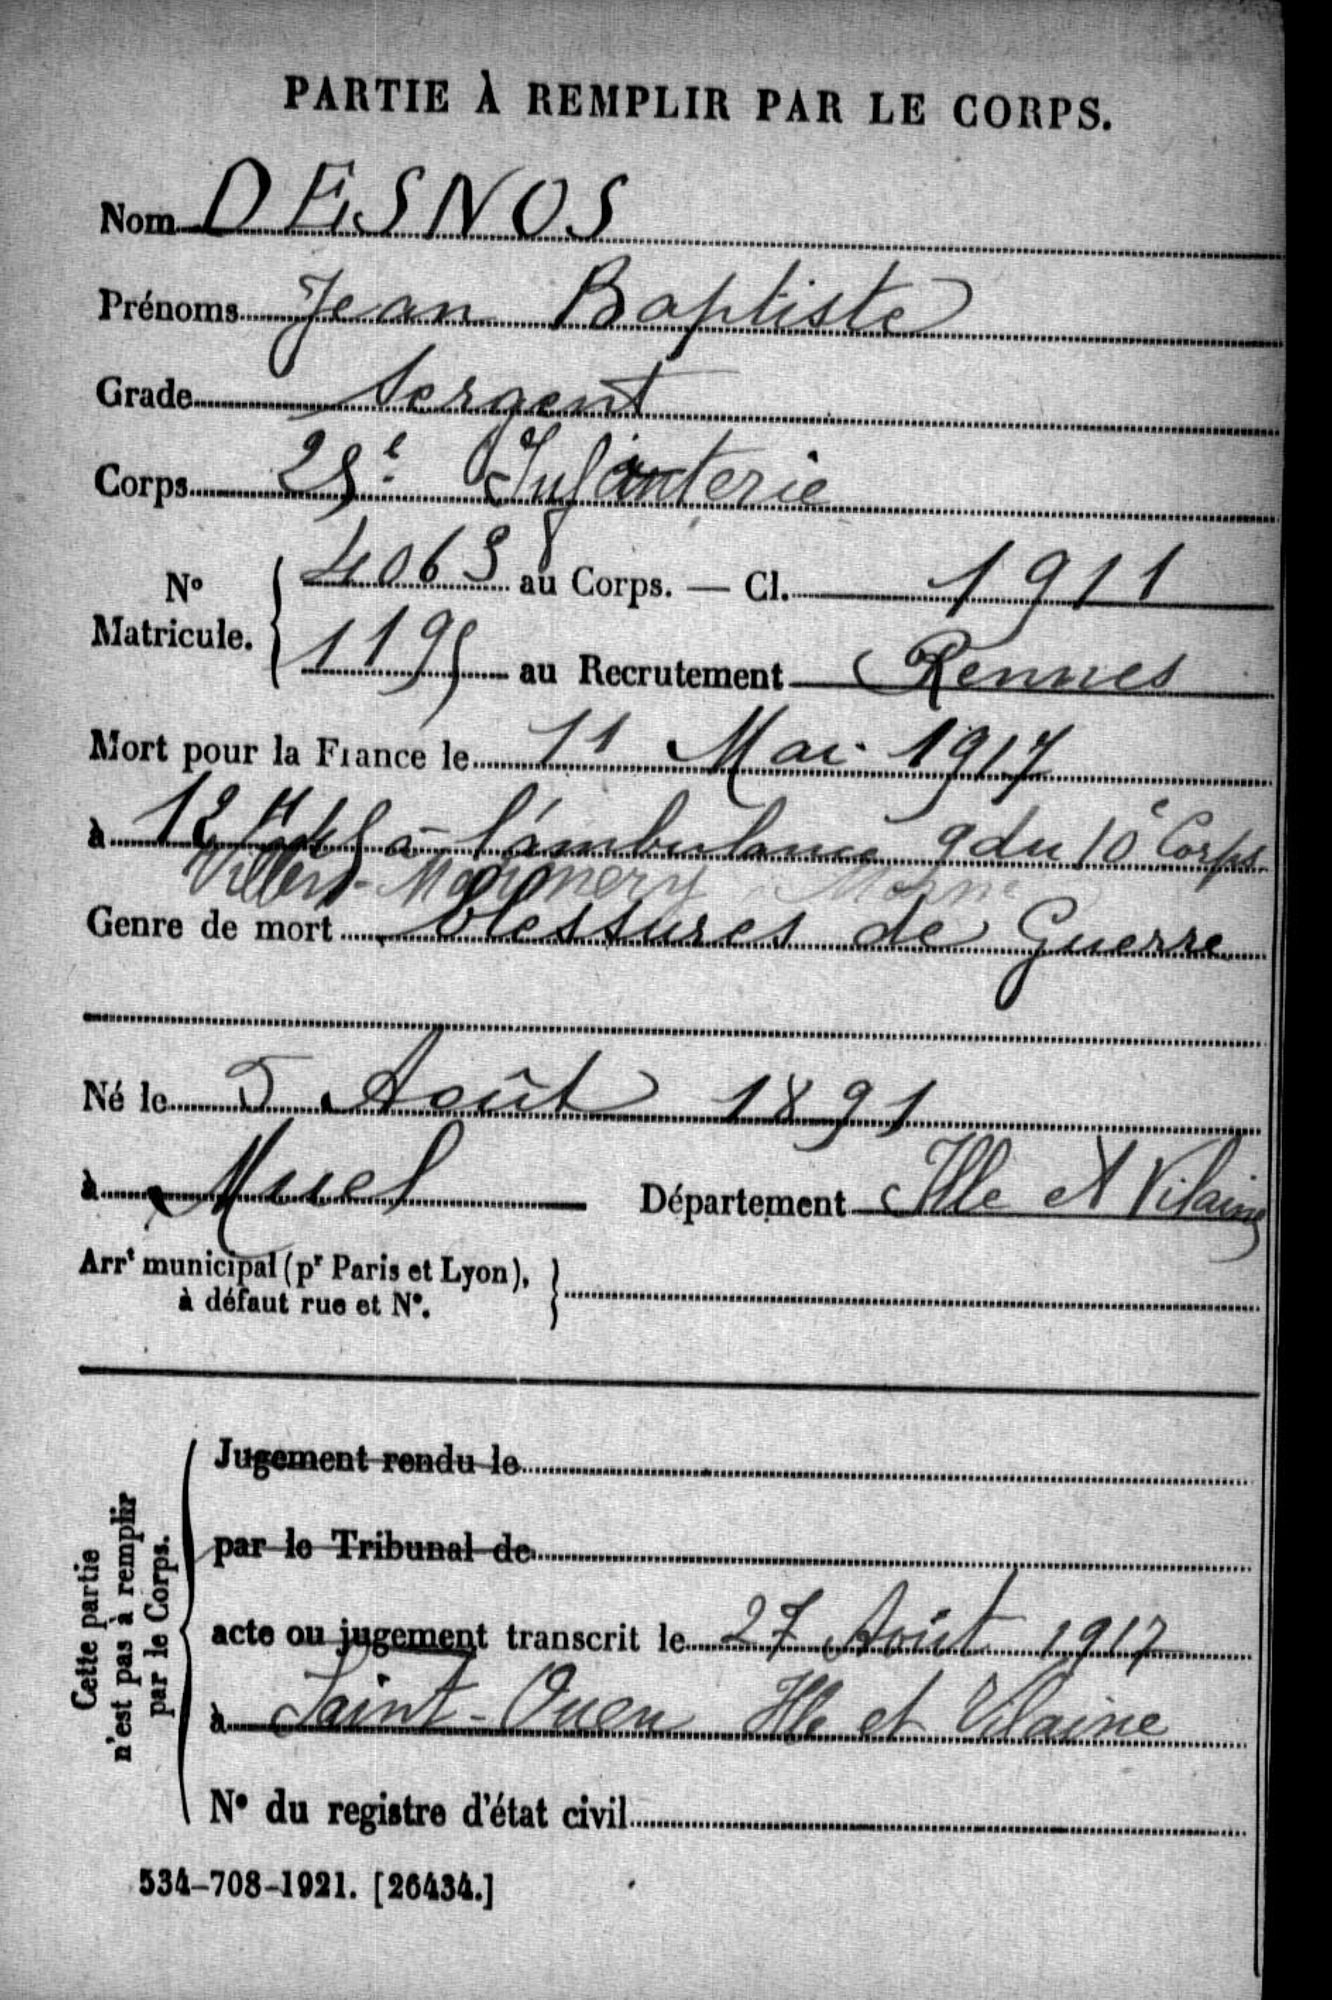 PARTIE À REMPLIR PAR LE CORPS.
Nom DESNOS
Prénoms Jean Baptiste
Grade Sergent
Corps 25e Infanterie
No Matricule. 4065 au Corps. — Cl. 1911
1195 au Recrutement Rennes
Mort pour la France le 11 Mai 1917
à 12 H à l'ambulance 9 du 10e Corps
Villers-Marmery Marne
Genre de mort blessures de Guerre
Né le 5 Août 1891
à Muel Département Ille et Vilaine
Arrt municipal (pr Paris et Lyon),
à défaut rue et No.
Cette partie
n'est pas à remplir
par le Corps.
Jugement rendu le
par le Tribunal de
acte ou jugement transcrit le 27 Août 1917
à Saint-Ouen Ille et Vilaine
No du registre d'état civil
534-708-1921. [26434.]